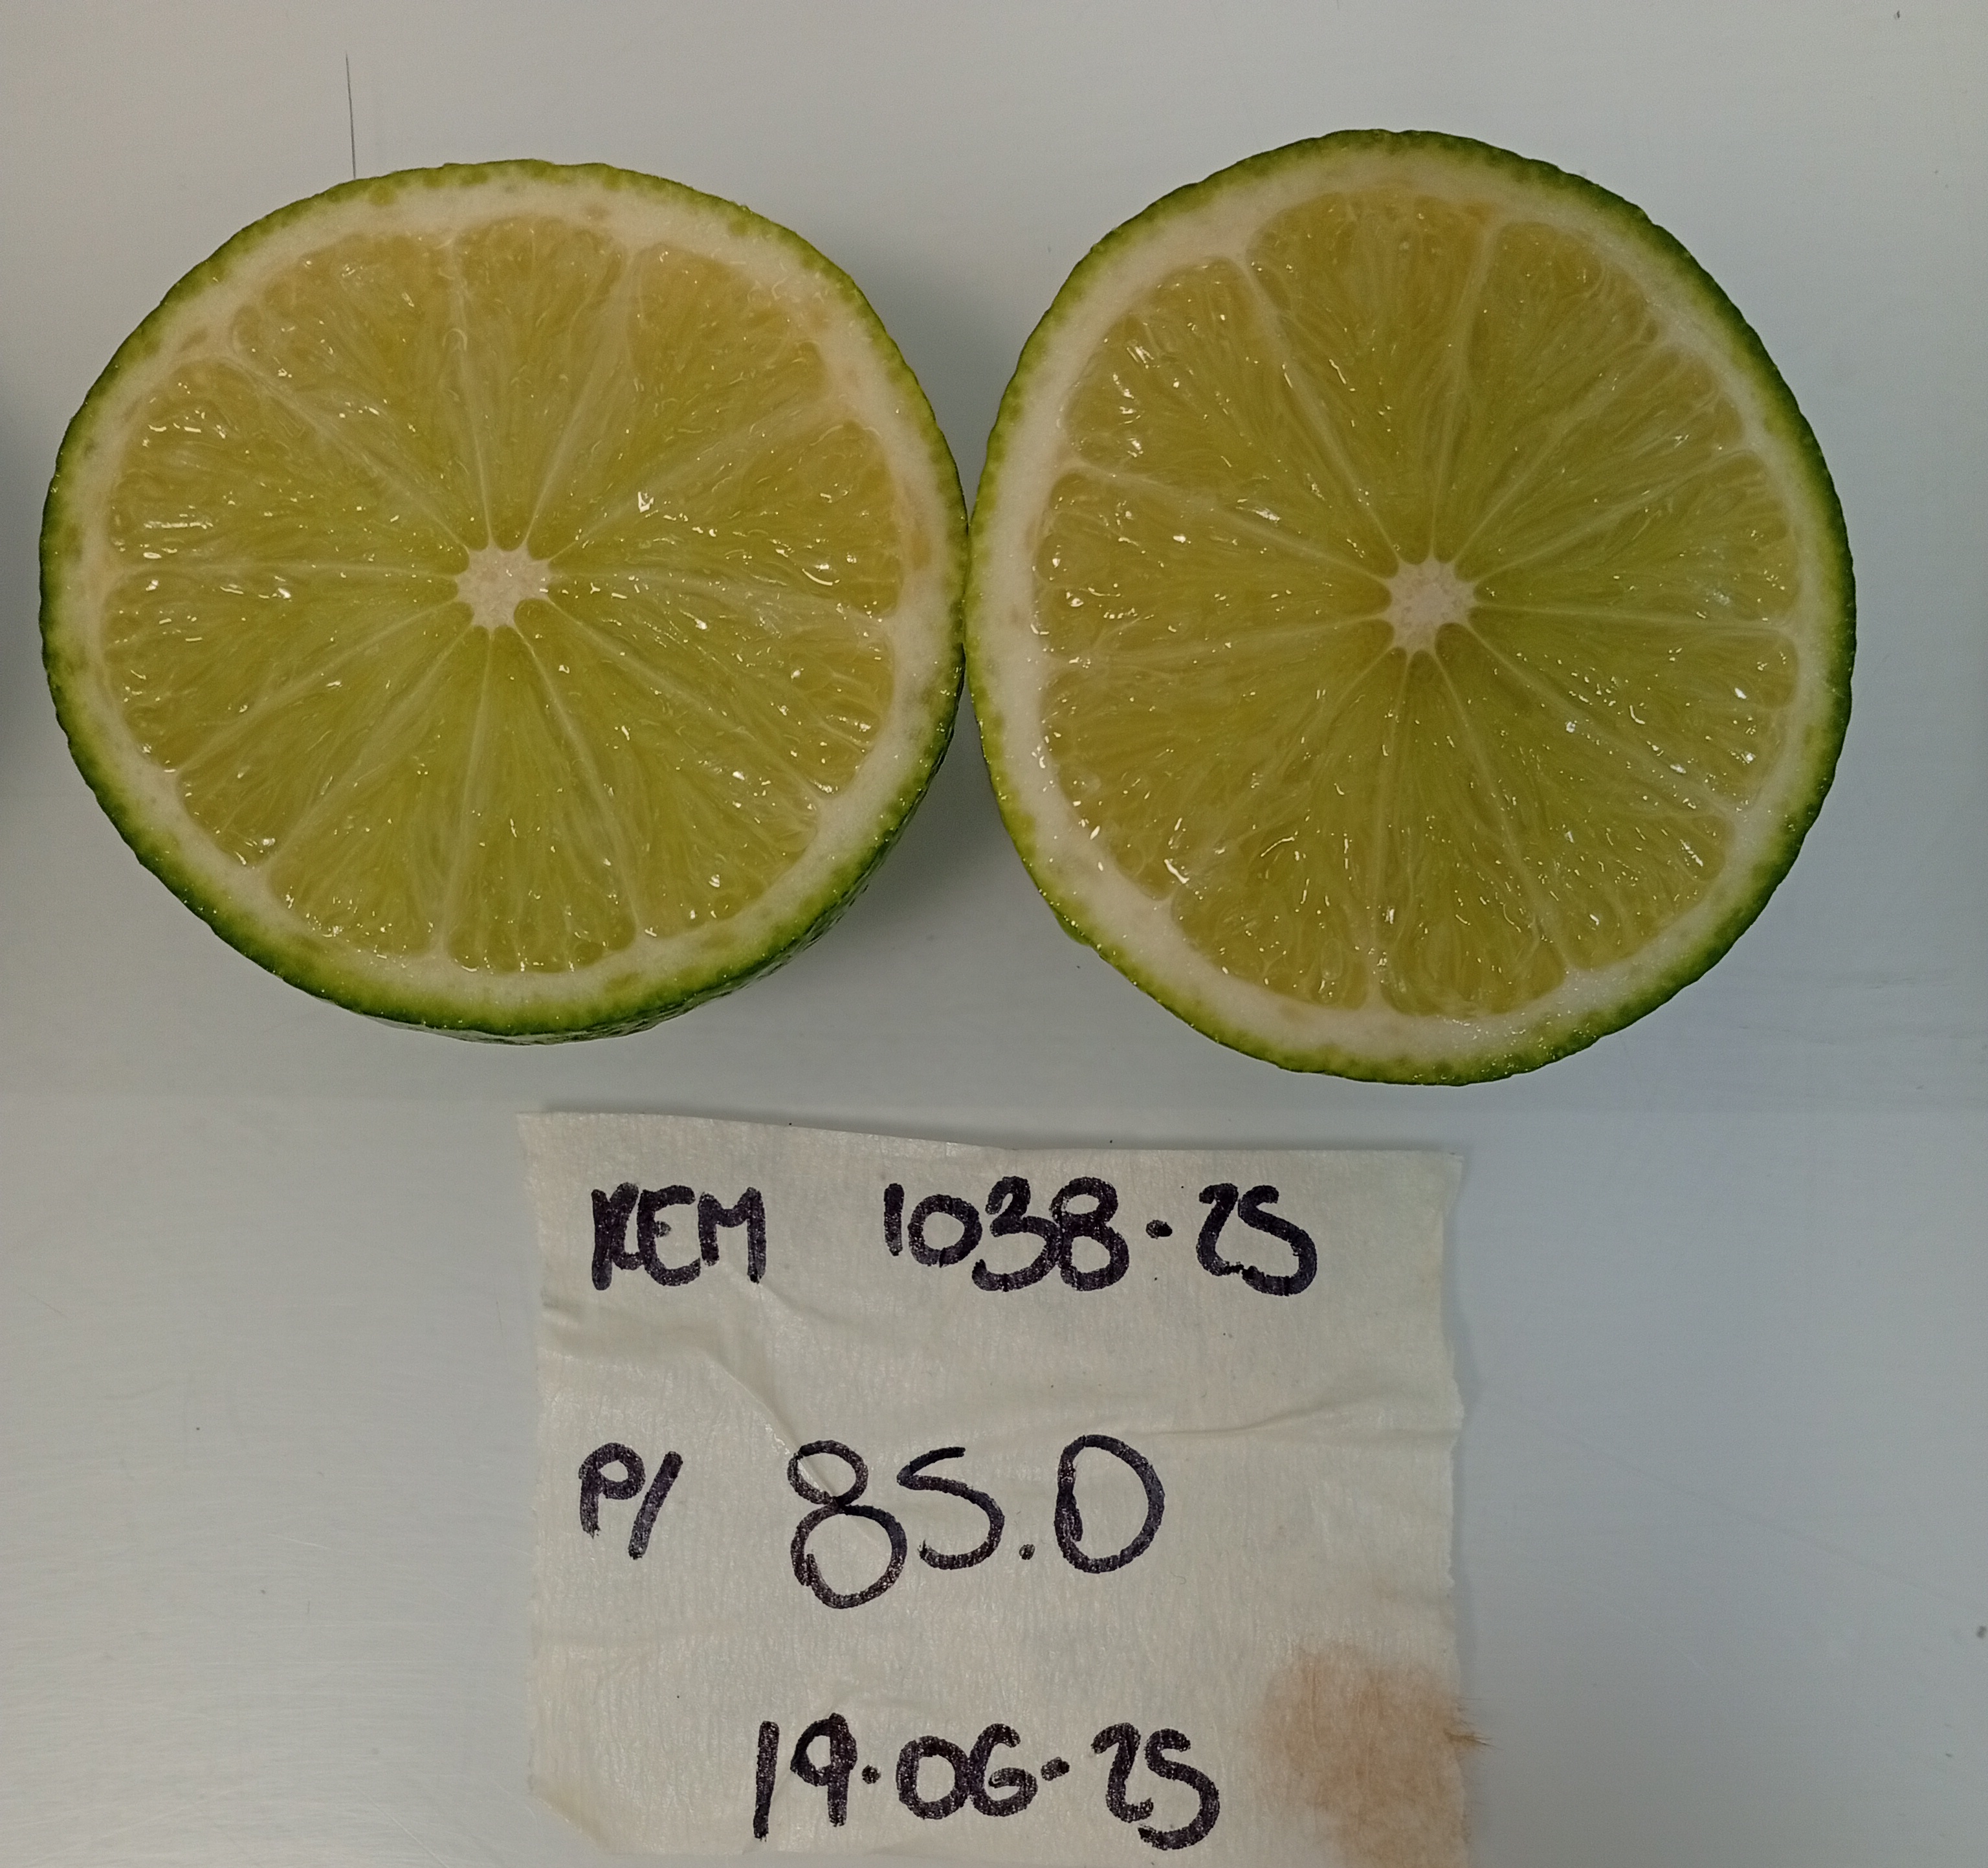 REM 1038-25
P/ 85.0
19.06-25